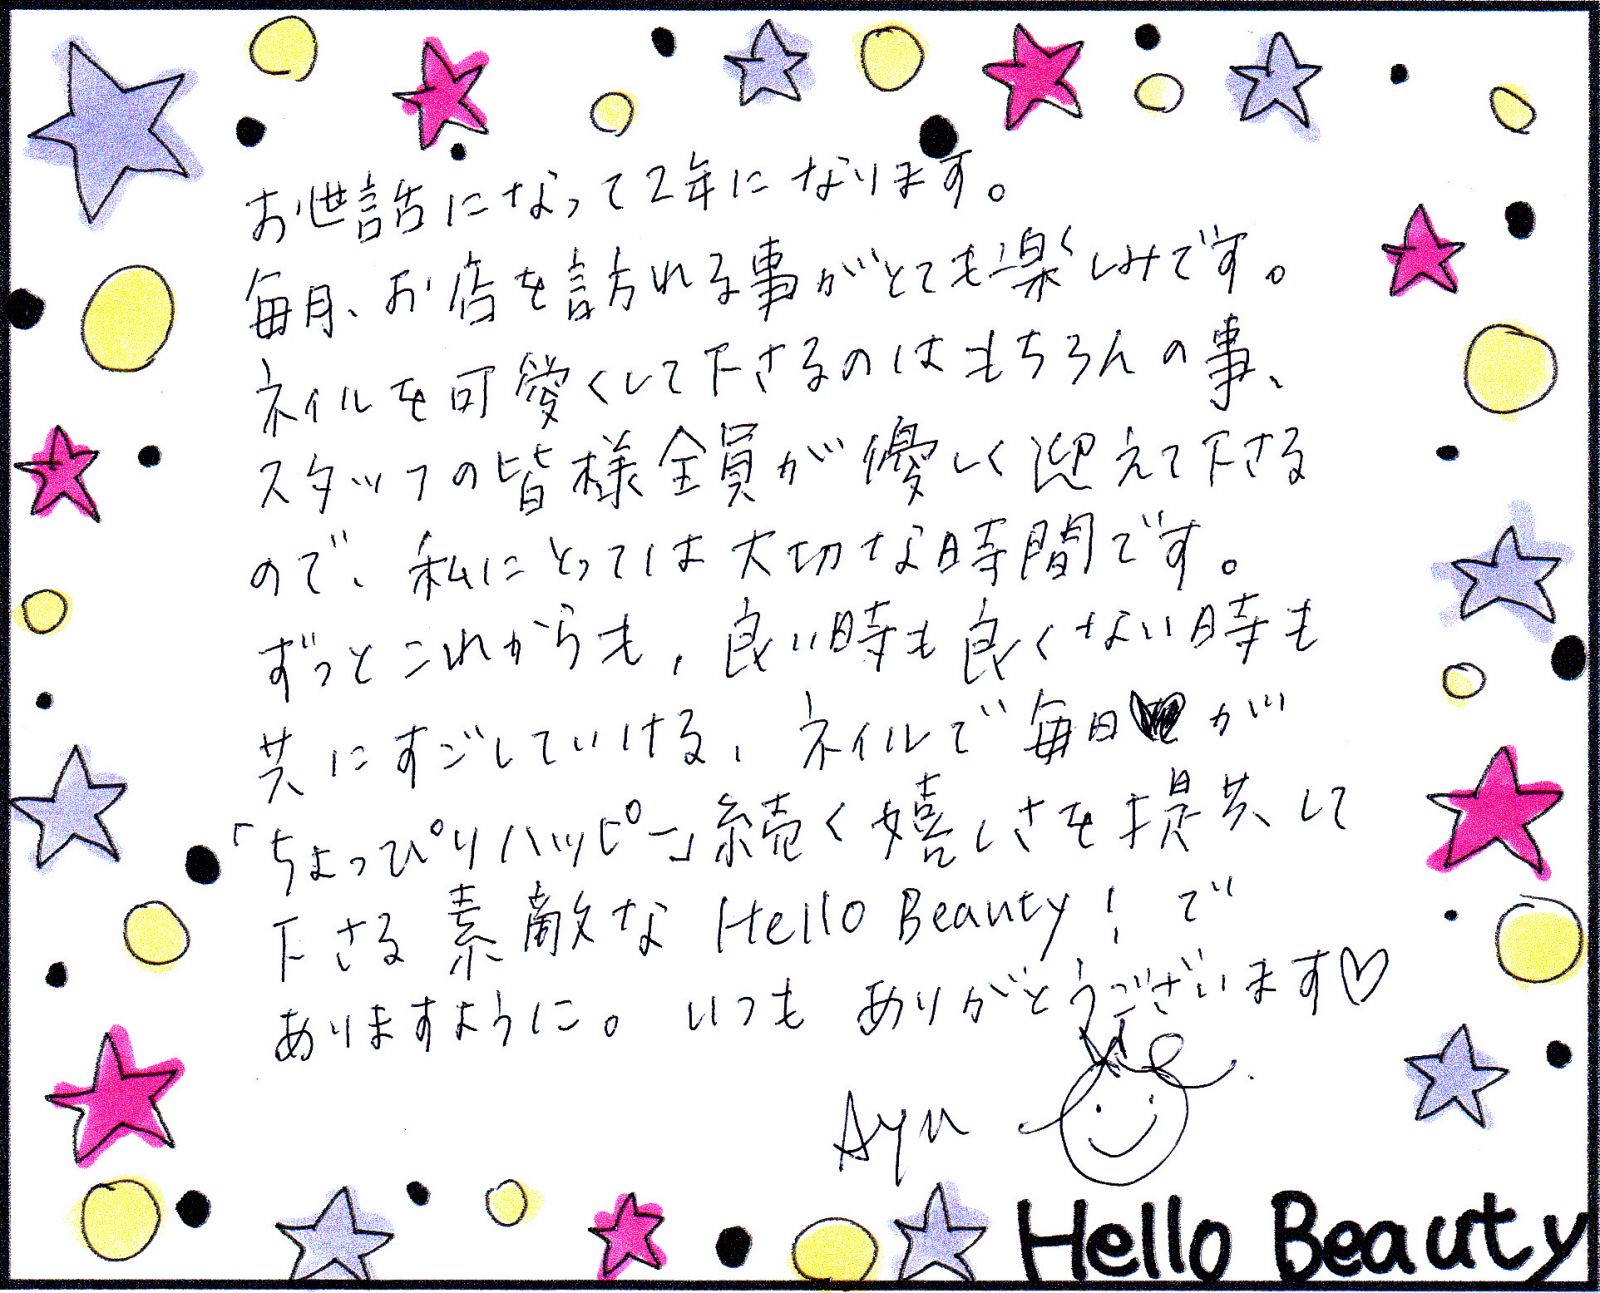 お世話になって2年になります。
毎月、お店を訪れる事がとても楽しみです。
ネイルを可愛くして下さるのはもちろんの事、
スタッフの皆様全員が優しく迎えて下さる
ので、私にとっては大切な時間です。
ずっとこれからも、良い時も良くない時も
共にすごしていける、ネイルで毎日が
「ちょっぴりハッピー」続く嬉しさを提供して
下さる素敵なHello Beauty!で
ありますように。いつもありがとうございます♡
Ayu
Hello Beauty